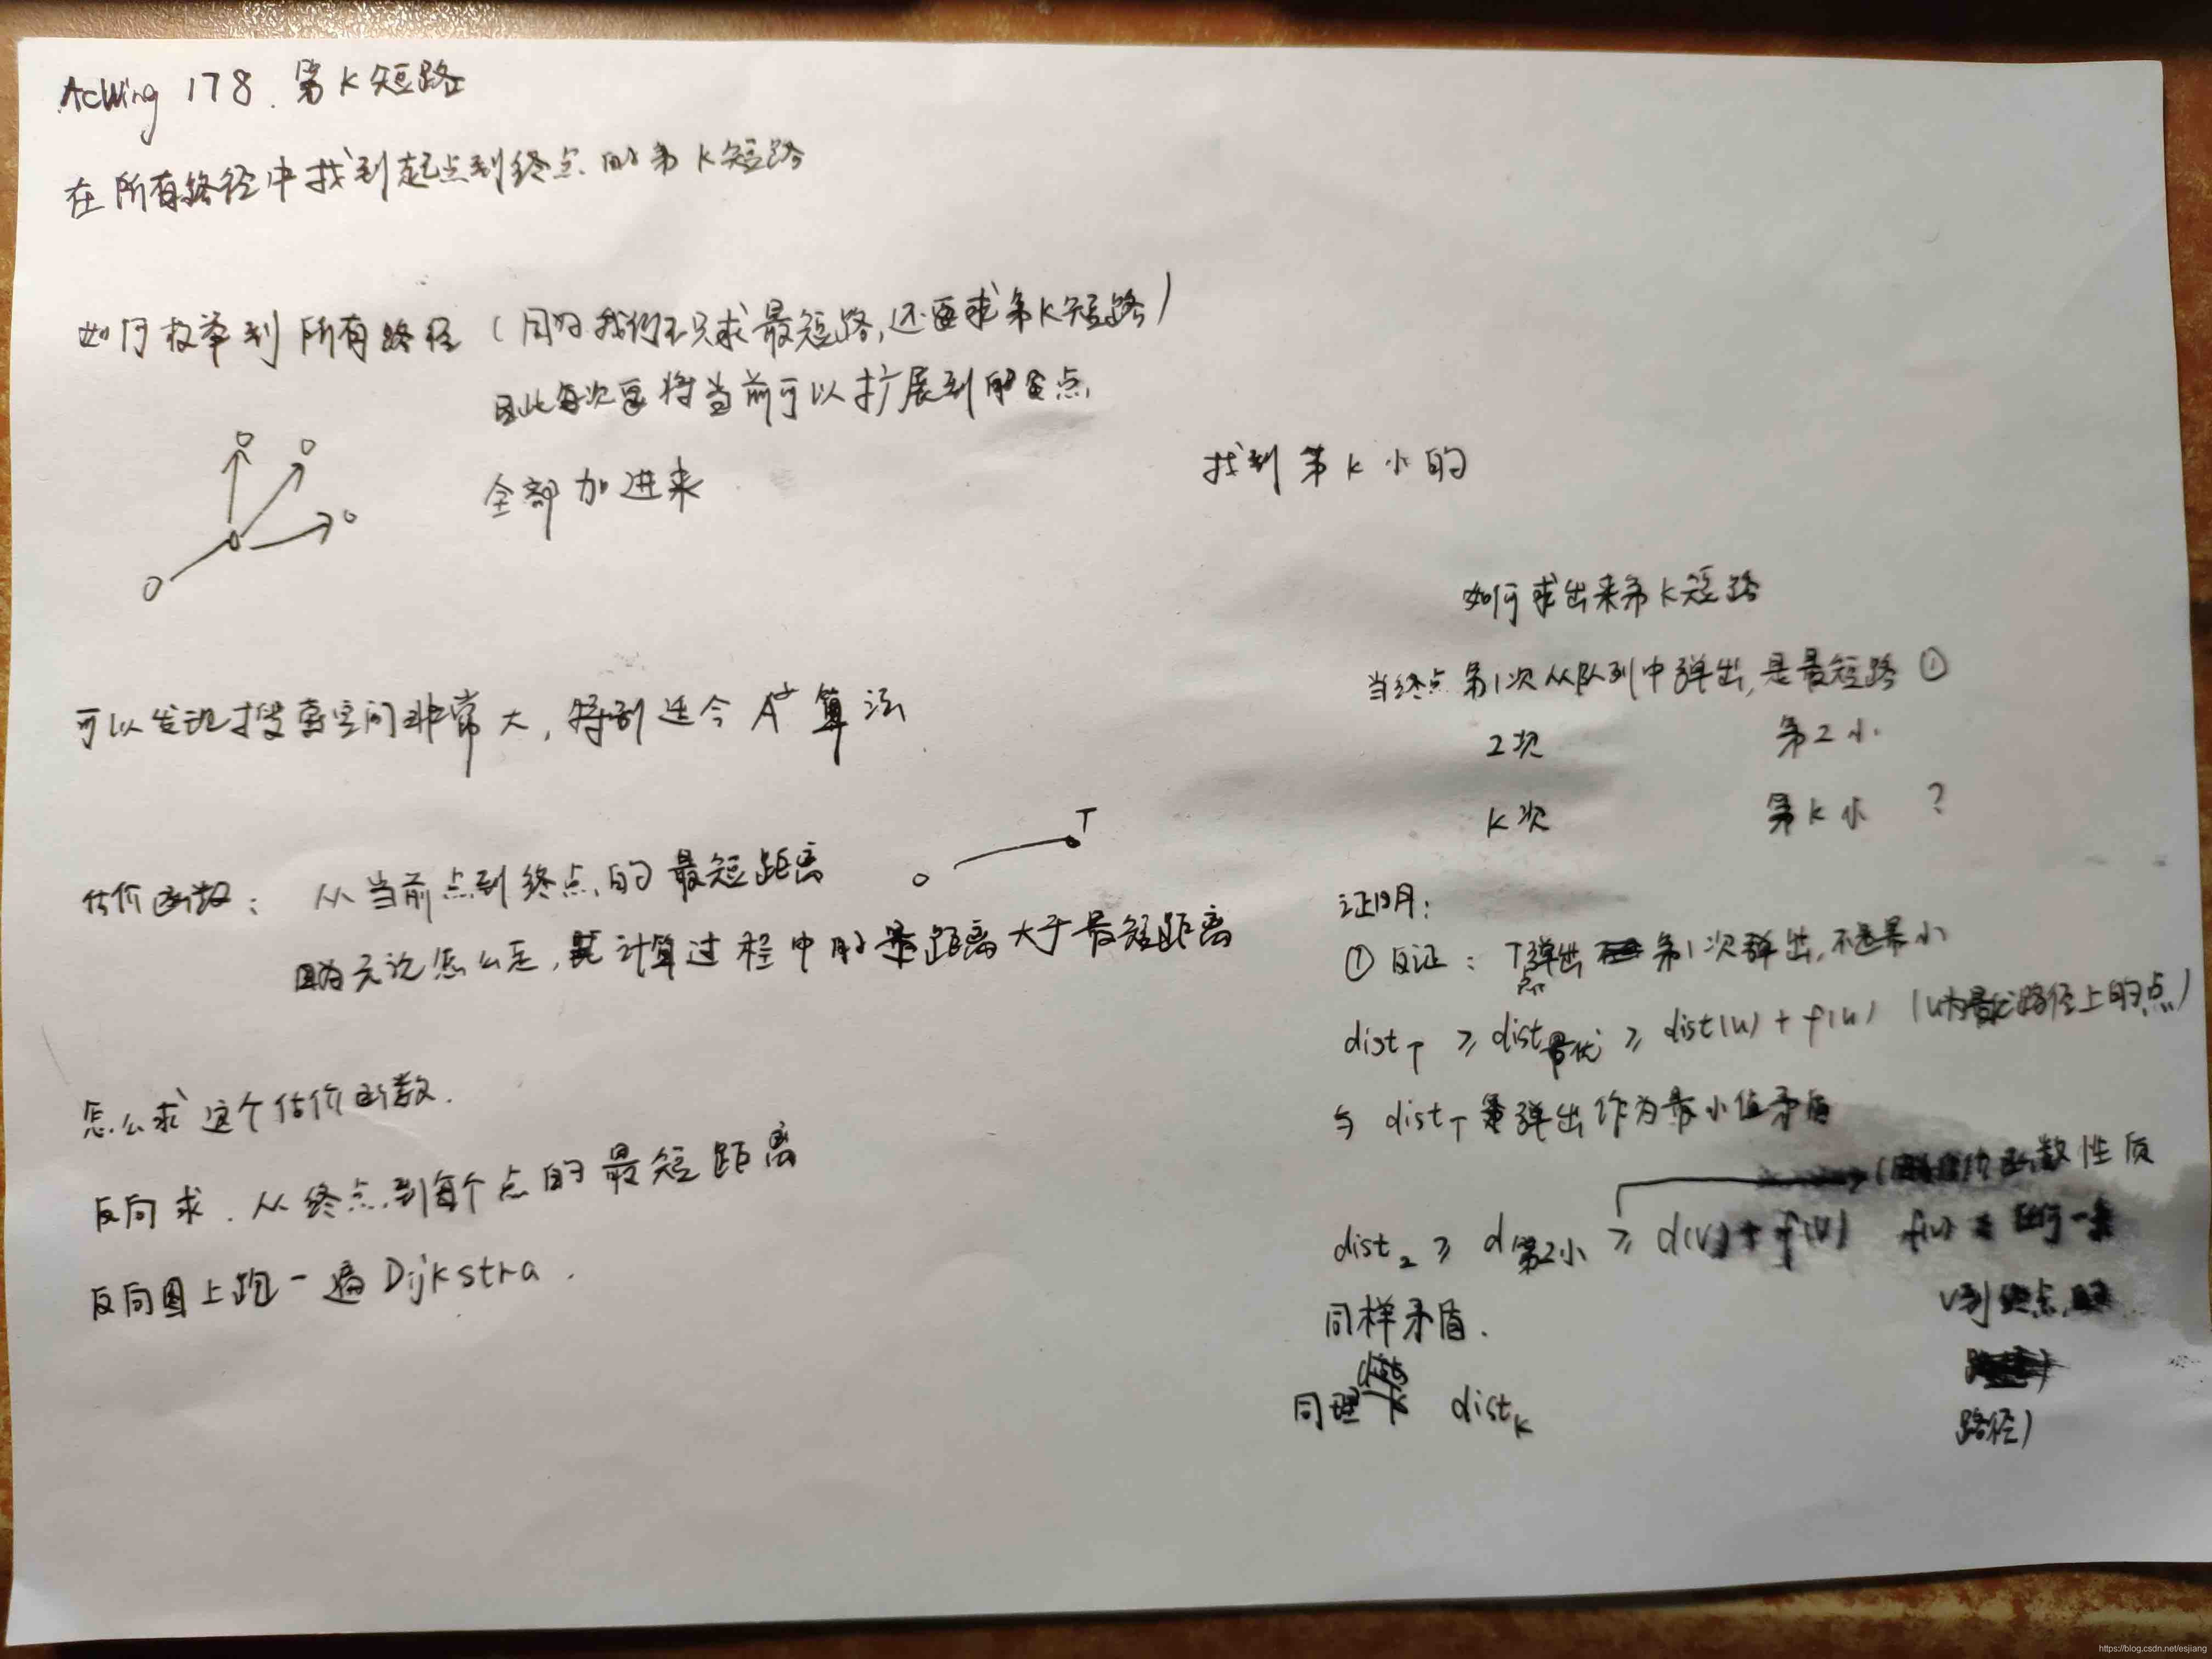 AcWing 178. 第K短路
在所有路径中找到起点到终点的第K短路
如何枚举到所有路径（因为我们不只求最短路,还要求第K短路）
因此每次要将当前可以扩展到的点
全部加进来
可以发现搜索空间非常大,特别适合A*算法
估价函数: 从当前点到终点的最短距离
T
因为无论怎么走,其计算过程中的距离大于最短距离
怎么求这个估价函数.
反向求.从终点到每个点的最短距离
反向图上跑一遍Dijkstra.
找到第K小的
如何求出来第K短路
当终点第1次从队列中弹出,是最短路①
2次 第2小
K次 第K小 ?
证明:
①反证: T点弹出 第1次弹出,不是最小
dist_T ≥ dist_最优 ≥ dist(u) + f(u) (u为最优路径上的点)
与 dist_T 弹出作为最小值矛盾
函数性质
dist_2 ≥ d_第2小 ≥ d(v) + f(v) f(v) 任何一条
v到终点的
同样矛盾.
路径)
同理 dist_K
https://blog.csdn.net/esjiang